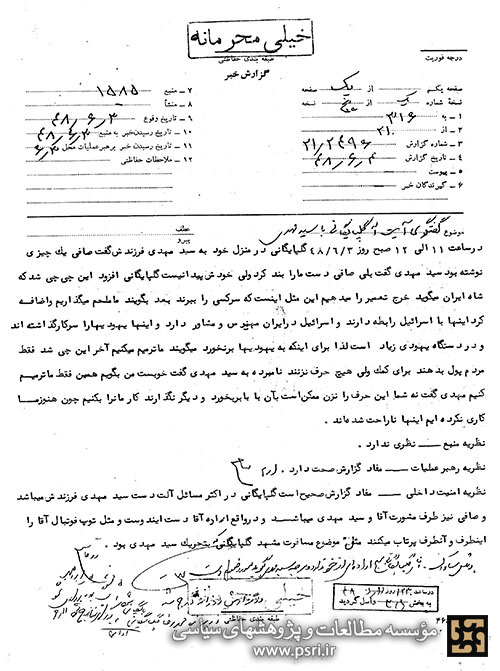 خیلی محرمانه
طبقه بندی حفاظتی
گزارش خبر
درجه فوریت
صفحه یکم از یک صفحه
نسخه شماره از پنج نسخه
۱ ـ به ۳۱۶
۲ ـ از ۲۱
۳ ـ شماره گزارش ۲۱/۲۴۹۶
۴ ـ تاریخ گزارش ۴۸/۶/۴
۵ ـ پیوست
۶ ـ گیرندگان خبر
۷ ـ منبع ۱۵۸۵
۸ ـ منشأ
۹ ـ تاریخ وقوع ۴۸/۶/۳
۱۰ ـ تاریخ رسیدن خبر به منبع ۴۸/۶/۳
۱۱ ـ تاریخ رسیدن خبر برهبر عملیات محل ۶/۳
۱۲ ـ ملاحظات حفاظتی
موضوع گفتگوی آیت اله گلپایگانی با سید مهدی
عطف
پیرو
در ساعت ۱۱ الی ۱۲ صبح روز ۴۸/۶/۳ گلپایگانی در منزل خود به سید مهدی فرزندش گفت صافی یك چیزی
نوشته بود سید مهدی گفت بلی صافی دست ما را بند کرد ولی خودش پیدا نیست گلپایگانی افزود این جی جی شد که
شاه ایران میگوید خرج تعمیر را میدهیم این مثل اینست که سرکسی را ببرند بعد بگویند ماملحم میگذاریم واضافه
کرد اینها با اسرائیل رابطه دارند و اسرائیل در ایران مهندس و مشاور دارد و اینها یهود یها را سر کار گذاشته اند
و در دستگاه یهودی زیاد است لذا برای اینکه به یهودیها برنخورد میگویند ما ترمیم میکنیم آخر این جی شد فقط
مردم پول بدهند برای کمك ولی هیچ حرف نزنند نامبرده به سید مهدی گفت خوبست من بگویم همین فقط ما ترمیم
کنیم مهدی گفت نه شما این حرف را نزن ممکن است بآن با بابربخورد و دیگر نگذارند کارمانرا بکنیم چون هنوز ما
کاری نکرده ایم اینها ناراحت شده اند .
نظریه منبع ـــ نظری ندارد .
نظریه رهبر عملیات ـــ مفاد گزارش صحت دارد .
نظریه امنیت داخلی ـــ مفاد گزارش صحیح است گلپایگانی در اکثر مسائل آلت دست سید مهدی فرزندش میباشد
و صافی نیز طرف مشورت آقا و سید مهدی میباشند و در واقع اراره آقا دست ایندوست و مثل توپ فوتبال آقا را
اینطرف و آنطرف پرتاب میکنند مثل موضوع مسافرت مشهد گلپایگانی که بتحریك سید مهدی بود .
خیلی محرمانه
طبقه بندی حفاظتی
در ساعت
به بخش ۳۱۶ واصل گردید
مؤسسه مطالعات و پژوهشهای سیاسی
www.psri.ir